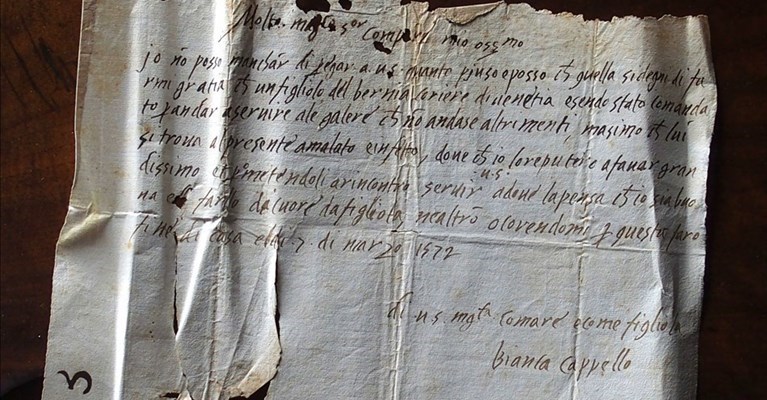 Molto mag.co s.or compare mio oss.mo
jo nõ posso manchar di pregar a v.s. quanto piu so e posso ch quella si degni di fa
rmi gratia ch un figliolo del bernia coriere di venetia esendo stato comanda
to p andar a servire a le galere ch nõ andase altrimenti, masimo ch lui
si trova al presente amalato e infeto, dove ch io lo reputerò a favor gran
dissimo et p metendoli a rincontro servir v.s. a dove la pensa ch io sia buo
na et farlo di cuore da figliola, ne altrõ ocorendomi p questa faro
fine di casa el di 7 di marzo 1572
di v.s. mg.ta comare e come figliola
Bianca Cappello
3